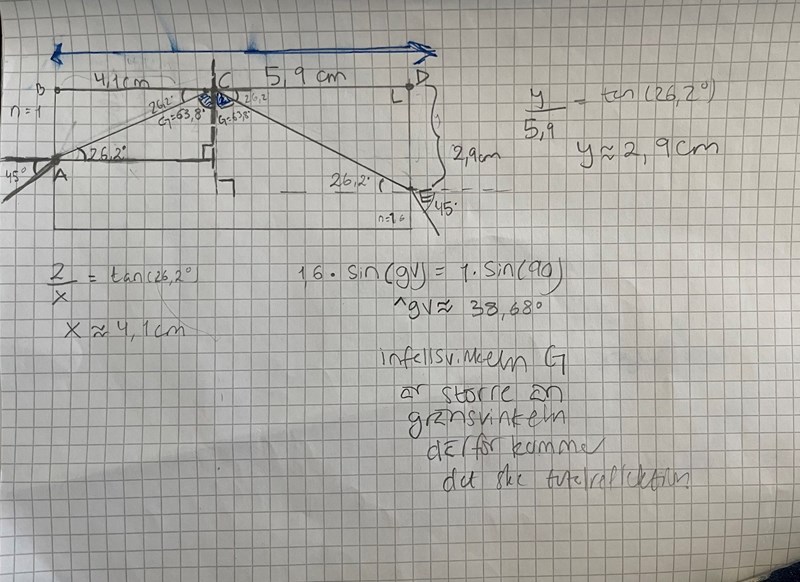 4,1cm
C
5,9 cm
D
B
n=1
26,2°
26,2
G=63,8°
G=63,8°
L
2,9cm
26,2°
45°
A
26,2°
n=1.6
45°
y/5,9 = tan(26,2°)
y≈2,9cm
2/x = tan(26,2°)
x≈4,1cm
1,6 · sin(gv) = 1 · sin(90)
^gv≈ 38,68°
infallsvinkeln G
är större än
gränsvinkeln
därför kommer
det ske totalreflektion